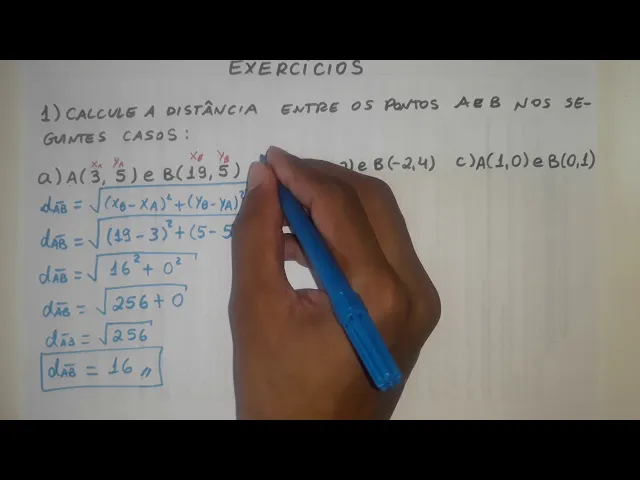 EXERCÍCIOS
1) CALCULE A DISTÂNCIA ENTRE OS PONTOS A e B NOS SE-
GUINTES CASOS:
xA yA xB yB
a) A(3, 5) e B(19, 5) ) e B(-2,4) c) A(1,0) e B(0,1)
dAB = √(xB - xA)² + (yB - yA)²
dAB = √(19 - 3)² + (5 - 5
dAB = √16² + 0²
dAB = √256 + 0
dAB = √256
dAB = 16 //